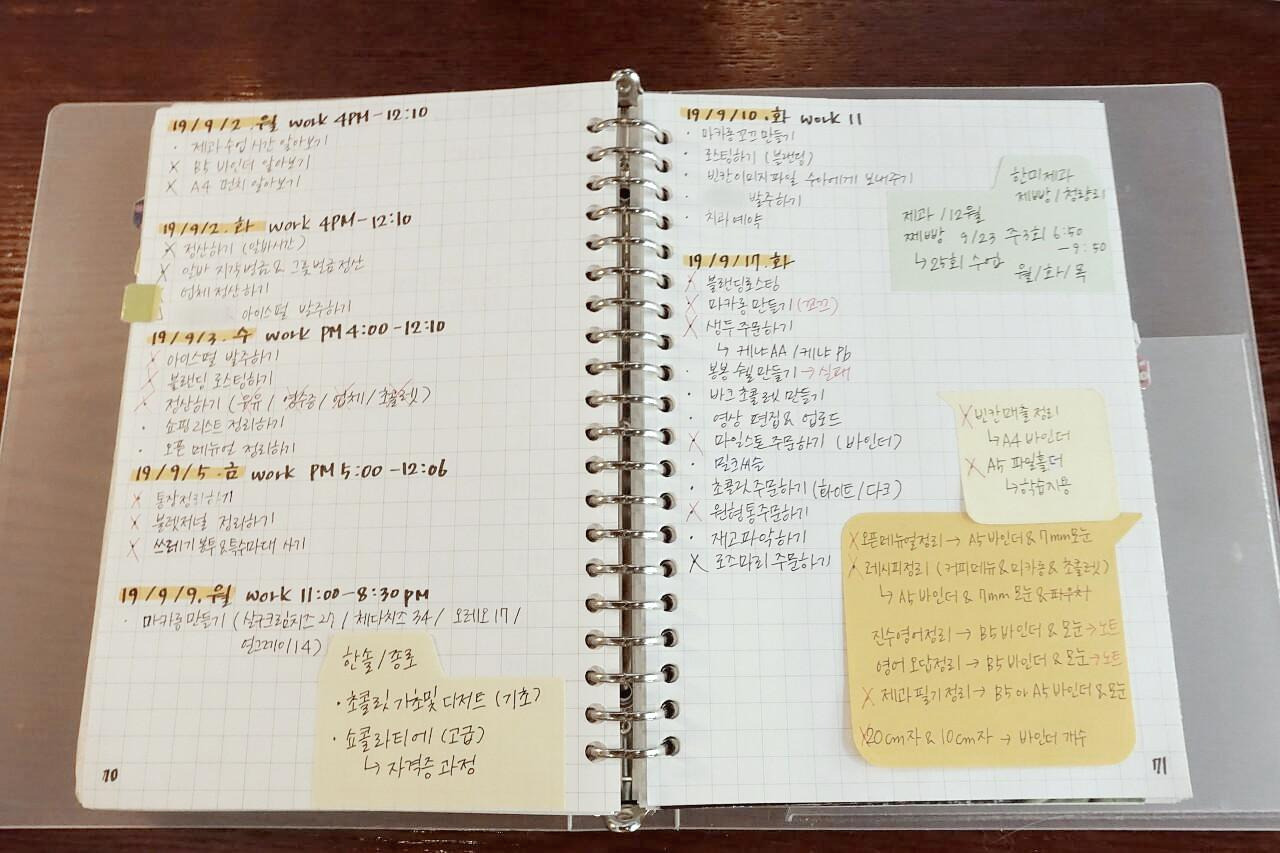 19/9/2.월 work 4PM-12:10
· 제과수업 시간 알아보기
x B5 바인더 알아보기
x A4 펀치 알아보기
19/9/2.화 work 4PM-12:10
x 정산하기 (알바시간)
x 알바 지각벌금 & 그룹벌금정산
x 업체정산하기
아이스펄 발주하기
19/9/3.수 work PM 4:00-12:10
x 아이스펄 발주하기
x 블랜딩 로스팅하기
· 정산하기 (우유/영수증/업체/초콜렛)
· 쇼핑리스트 정리하기
· 오픈 메뉴얼 정리하기
19/9/5.금 work PM 5:00-12:06
x 통장정리하기
x 불렛저널 정리하기
x 쓰레기봉투&특수마대 사기
19/9/9.월 work 11:00-8:30PM
· 마카롱만들기 (크림치즈 27/체다치즈 34/오레오 17/
얼그레이 14)
한솔/종로
· 초콜릿 기초및 디저트 (기초)
· 쇼콜라티에 (고급)
↳ 자격증과정
70
19/9/10.화 work 11
· 마카롱꼬끄만들기
· 로스팅하기 (블랜딩)
· 빈칸이미지파일 수아에게 보내주기
· 발주하기
· 치과예약
한미제과
제빵/청량리
제과/12월
제빵 9/23 주3회 6:50
-9:50
↳25회 수업 월/화/목
19/9/17.화
x 블랜딩로스팅
x 마카롱 만들기 (꼬끄)
x 생두주문하기
↳ 케냐AA/케냐Pb
· 봉봉 쉘 만들기 → 실패
· 바크초콜렛 만들기
· 영상 편집 & 업로드
x 마일스톤 주문하기 (바인더)
· 밀크씨슬
· 초콜릿주문하기 (화이트/다크)
x 원형통주문하기
· 재고파악하기
x 로즈마리 주문하기
x 빈칸매출정리
↳A4 바인더
x A5 파일홀더
↳학습지용
x 오픈메뉴얼정리 → A5 바인더 & 7mm모눈
x 레시피정리 (커피메뉴&마카롱&초콜렛)
↳ A5 바인더 & 7mm 모눈 & 파우치
진수영어정리 → B5 바인더 & 모눈 → 노트
영어 오답정리 → B5 바인더 & 모눈 → 노트
x 제과필기정리 → B5 아 A5 바인더 & 모눈
x 20cm자 & 10cm자 → 바인더 개수
71